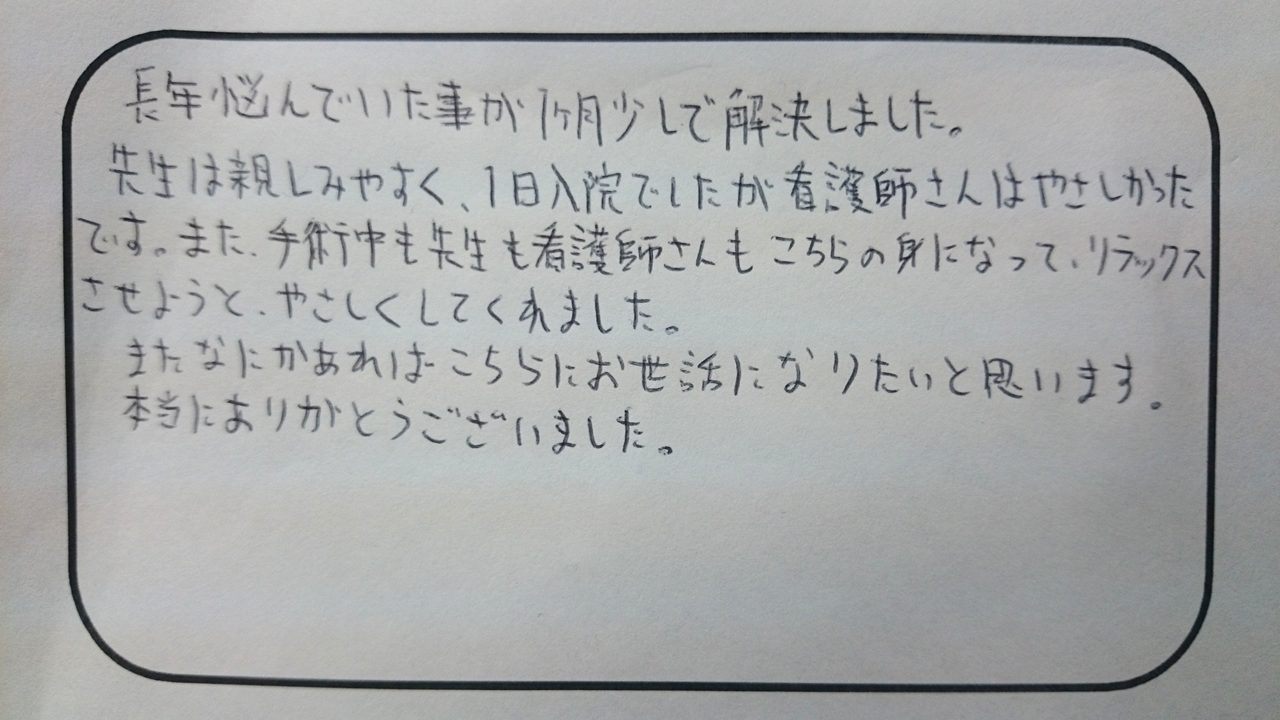 長年悩んでいた事が1ヶ月少しで解決しました。
先生は親しみやすく、1日入院でしたが看護師さんはやさしかった
です。また、手術中も先生も看護師さんもこちらの身になって、リラックス
させようと、やさしくしてくれました。
またなにかあればこちらにお世話になりたいと思います。
本当にありがとうございました。